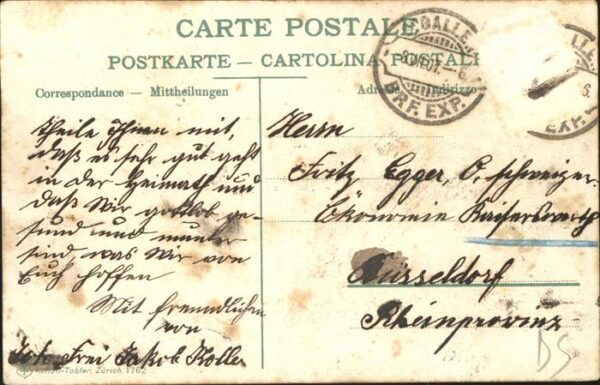 CARTE POSTALE
POSTKARTE — CARTOLINA POSTALE
Correspondance — Mittheilungen
GALLE
RF. EXP.
EXP.
Theile Ihnen mit,
daß es sehr gut geht
in der Heimath und
daß Wir gottlob ge-
sund und munter
sind, was Wir von
Euch hoffen
Mit freundlichen
von
Frei Jakob Koller
Herrn
Fritz Egger, O. schweizer.
Ökonomie Kaiserswerth
Düsseldorf
Rheinprovinz
DS
Künzli-Tobler, Zürich. 1762